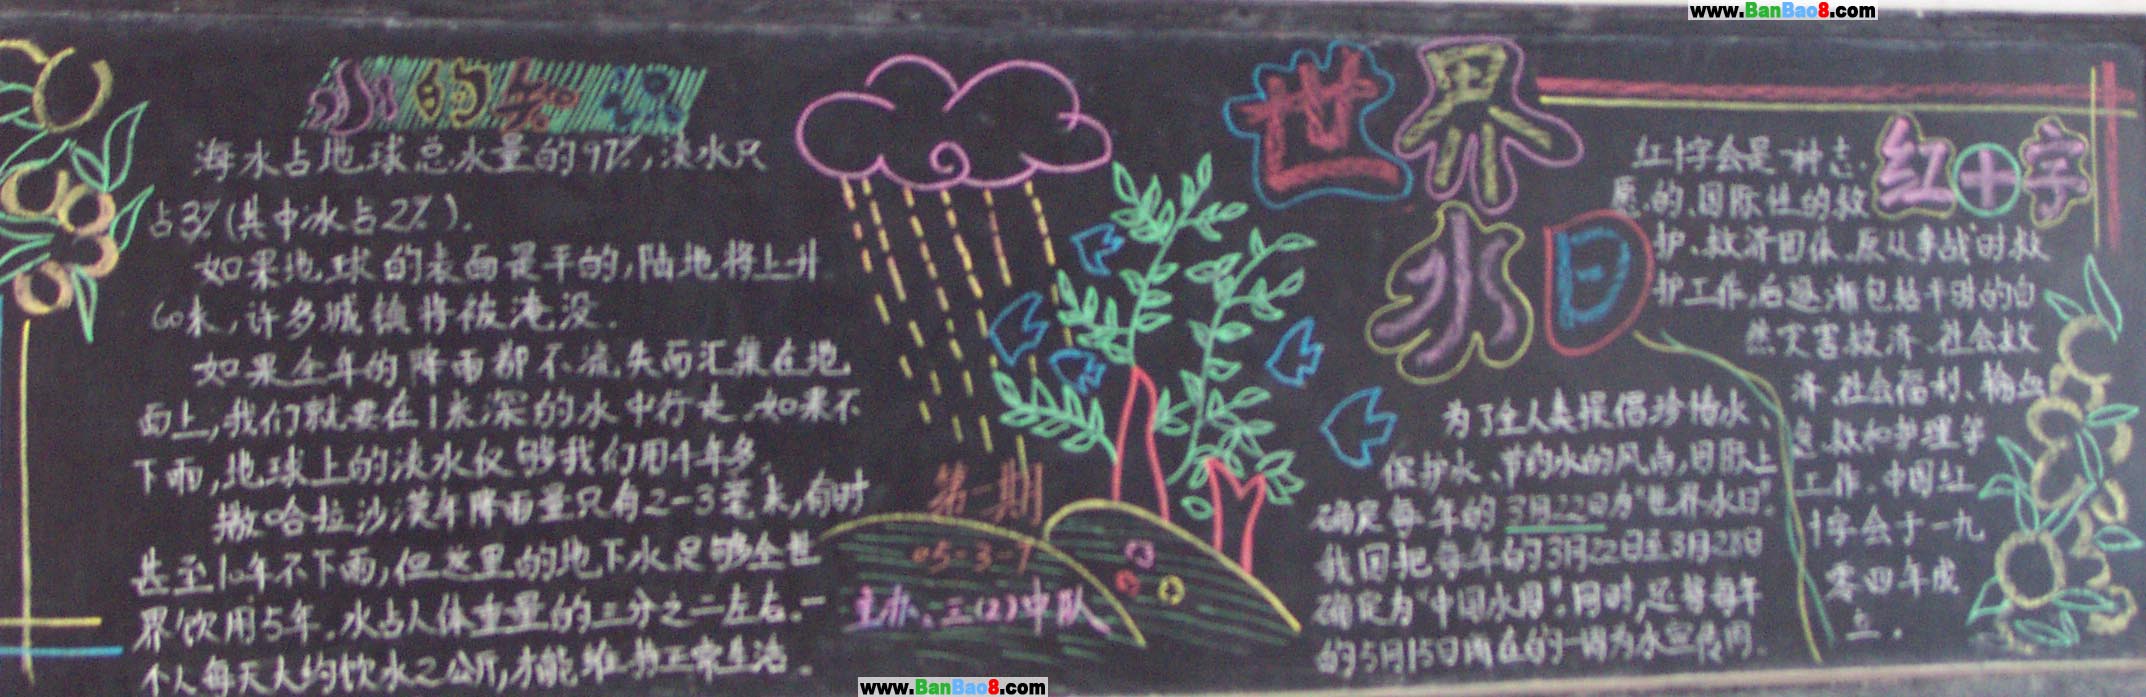 www.BanBao8.com
水的
海水占地球总水量的97%,淡水只
占3%(其中冰占2%).
如果地球的表面是平的,陆地将上升
60米,许多城镇将被淹没.
如果全年的降雨都不流失而汇集在地
面上,我们就要在1米深的水中行走.如果不
下雨,地球上的淡水仅够我们用4年多.
撒哈拉沙漠年降雨量只有2-3毫米,有时
甚至10年不下雨,但这里的地下水足够全世
界饮用5年.水占人体重量的三分之二左右.一
个人每天大约饮水2公斤,才能维持正常生活.
第一期
05-3-7
主办:三(2)中队
世界
水日
为了全人类提倡珍惜水、
保护水、节约水的风尚,国际上
确定每年的3月22日为"世界水日".
我国把每年的3月22日至3月28日
确定为"中国水周".同时,还将每年
的5月15日所在的一周为水宣传周.
红十字
红十字会是一种志
愿的、国际性的救
护、救济团体.原从事战时救
护工作,后逐渐包括平时的自
然灾害救济、社会救
济、社会福利、输血
急救和护理等
工作.中国红
十字会于一九
零四年成
立.
www.BanBao8.com